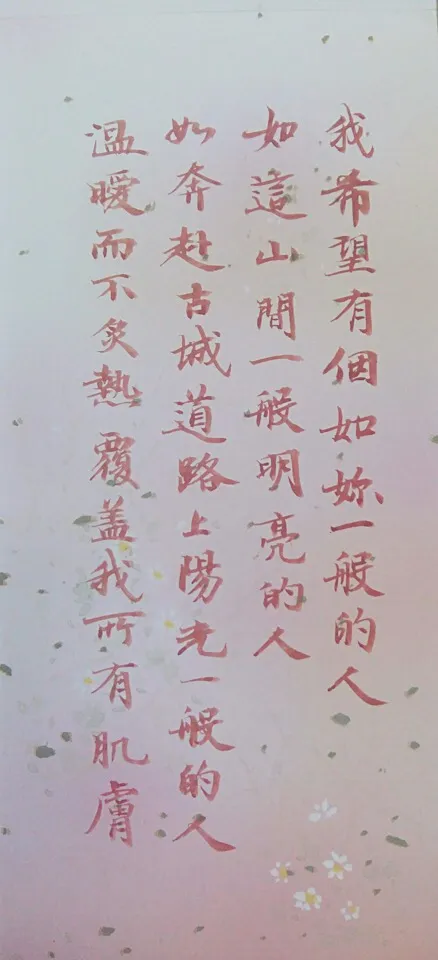 我希望有個如妳一般的人
如這山間一般明亮的人
如奔赴古城道路上陽光一般的人
溫暖而不炙熱覆盖我所有肌膚